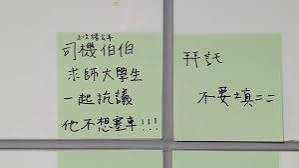 司機伯伯
求師大學生
一起抗議
他不想塞車!!!
拜託
不要填==